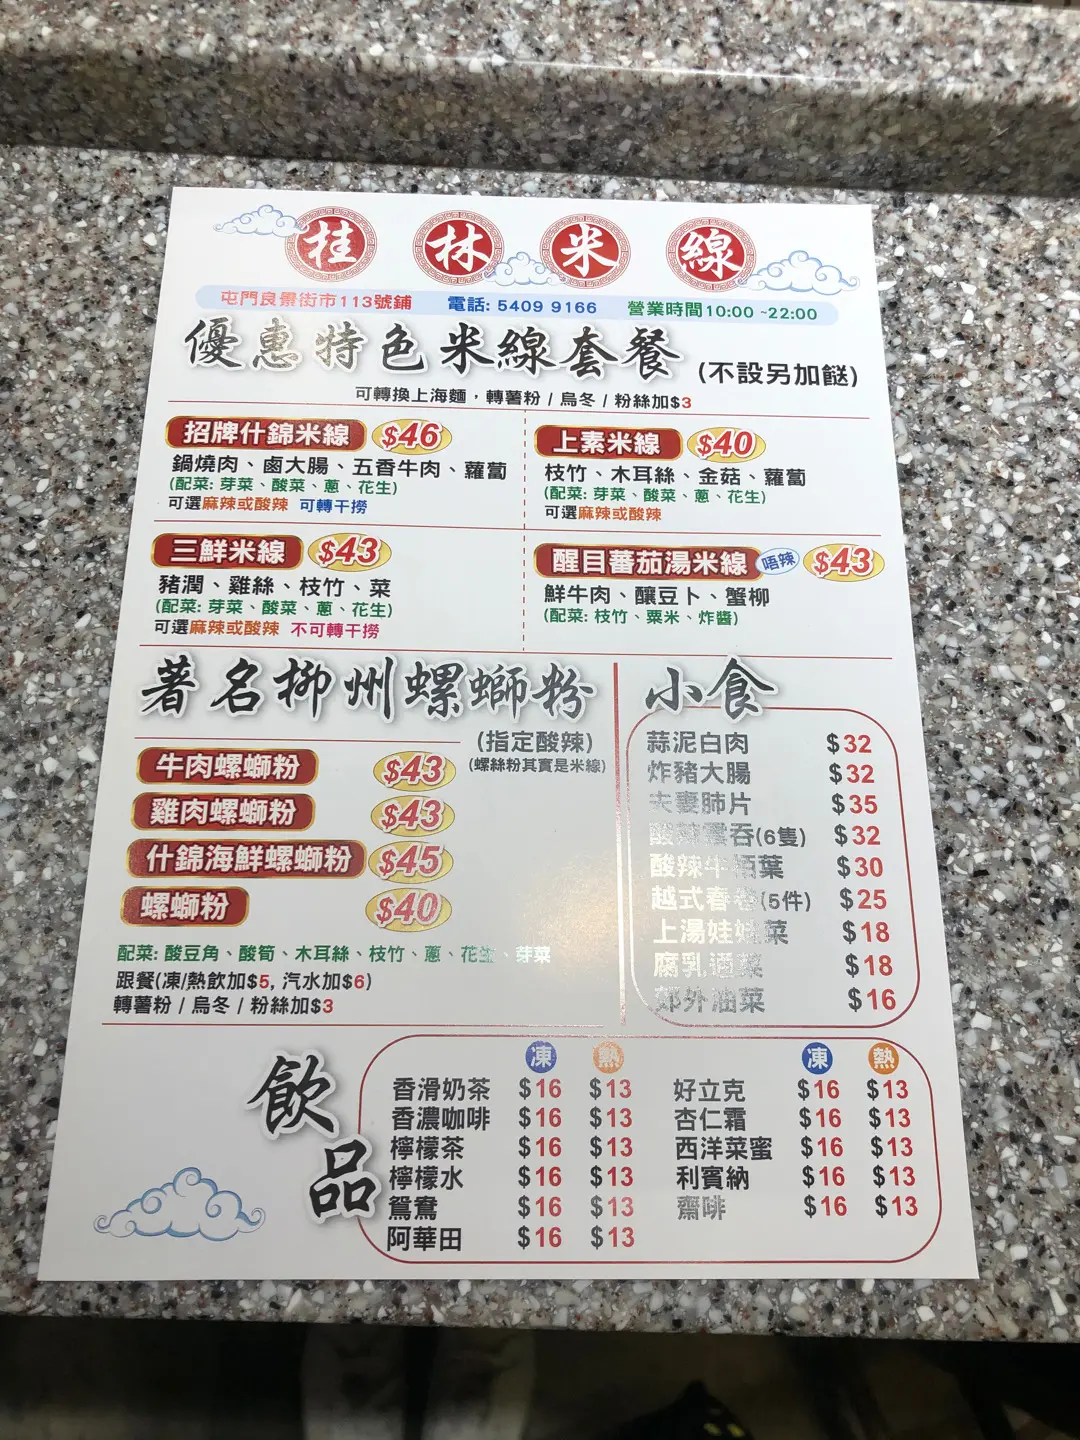 桂林米線
屯門良景街市113號鋪 電話: 5409 9166 營業時間10:00 ~22:00
優惠特色米線套餐 (不設另加餸)
可轉換上海麵，轉薯粉 / 烏冬 / 粉絲加$3
招牌什錦米線 $46
鍋燒肉、鹵大腸、五香牛肉、蘿蔔
(配菜: 芽菜、酸菜、蔥、花生)
可選麻辣或酸辣 可轉干撈
上素米線 $40
枝竹、木耳絲、金菇、蘿蔔
(配菜: 芽菜、酸菜、蔥、花生)
可選麻辣或酸辣
三鮮米線 $43
豬潤、雞絲、枝竹、菜
(配菜: 芽菜、酸菜、蔥、花生)
可選麻辣或酸辣 不可轉干撈
醒目蕃茄湯米線 唔辣 $43
鮮牛肉、釀豆卜、蟹柳
(配菜: 枝竹、粟米、炸醬)
著名柳州螺螄粉
(指定酸辣)
(螺絲粉其實是米線)
牛肉螺螄粉 $43
雞肉螺螄粉 $43
什錦海鮮螺螄粉 $45
螺螄粉 $40
配菜: 酸豆角、酸筍、木耳絲、枝竹、蔥、花生、芽菜
跟餐(凍/熱飲加$5, 汽水加$6)
轉薯粉 / 烏冬 / 粉絲加$3
小食
蒜泥白肉 $32
炸豬大腸 $32
夫妻肺片 $35
酸辣雲吞(6隻) $32
酸辣牛栢葉 $30
越式春卷(5件) $25
上湯娃娃菜 $18
腐乳通菜 $18
郊外油菜 $16
飲品
凍 熱
香滑奶茶 $16 $13
香濃咖啡 $16 $13
檸檬茶 $16 $13
檸檬水 $16 $13
鴛鴦 $16 $13
阿華田 $16 $13
凍 熱
好立克 $16 $13
杏仁霜 $16 $13
西洋菜蜜 $16 $13
利賓納 $16 $13
齋啡 $16 $13